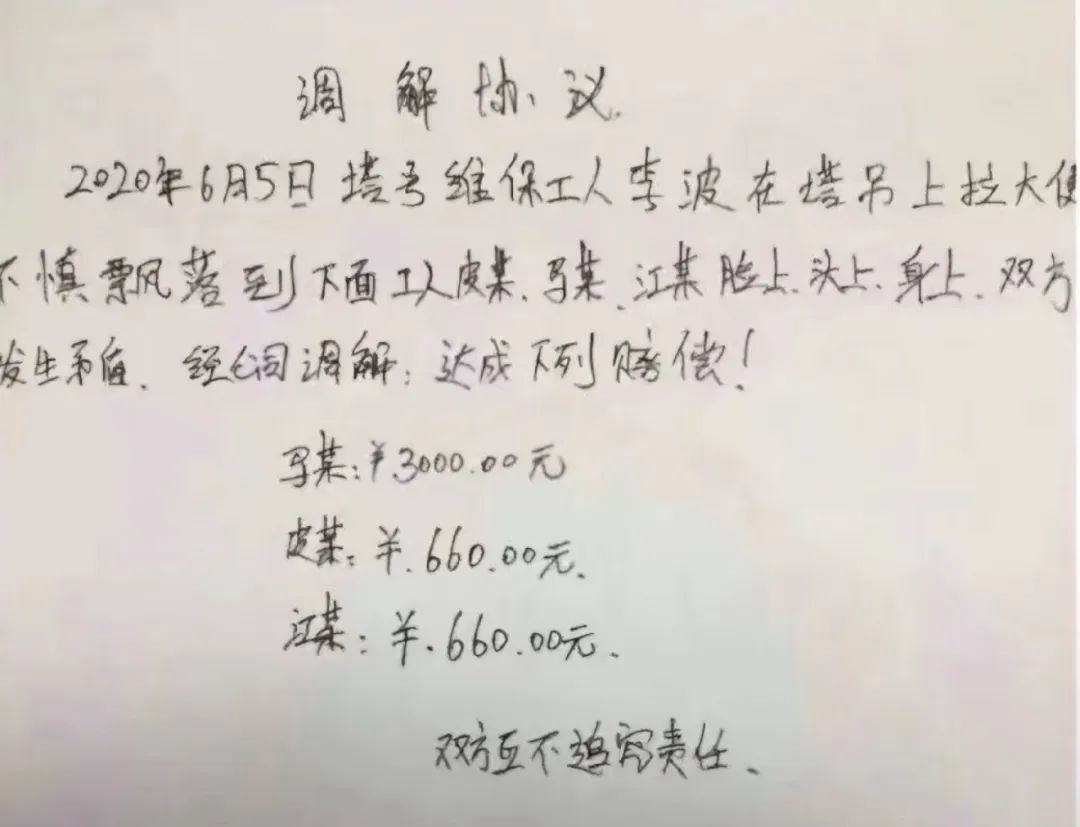 调解协议
2020年6月5日塔吊维保工人李波在塔吊上拉大便
不慎飘落到下面工人皮某、马某、江某脸上、头上、身上、双方
发生矛盾、经公司调解:达成下列赔偿!
马某:¥3000.00元
皮某:¥.660.00元.
江某:¥.660.00元.
双方互不追究责任.